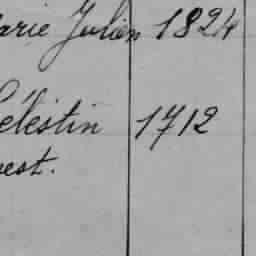 arie Julien 1824
Célestin 1712
est.